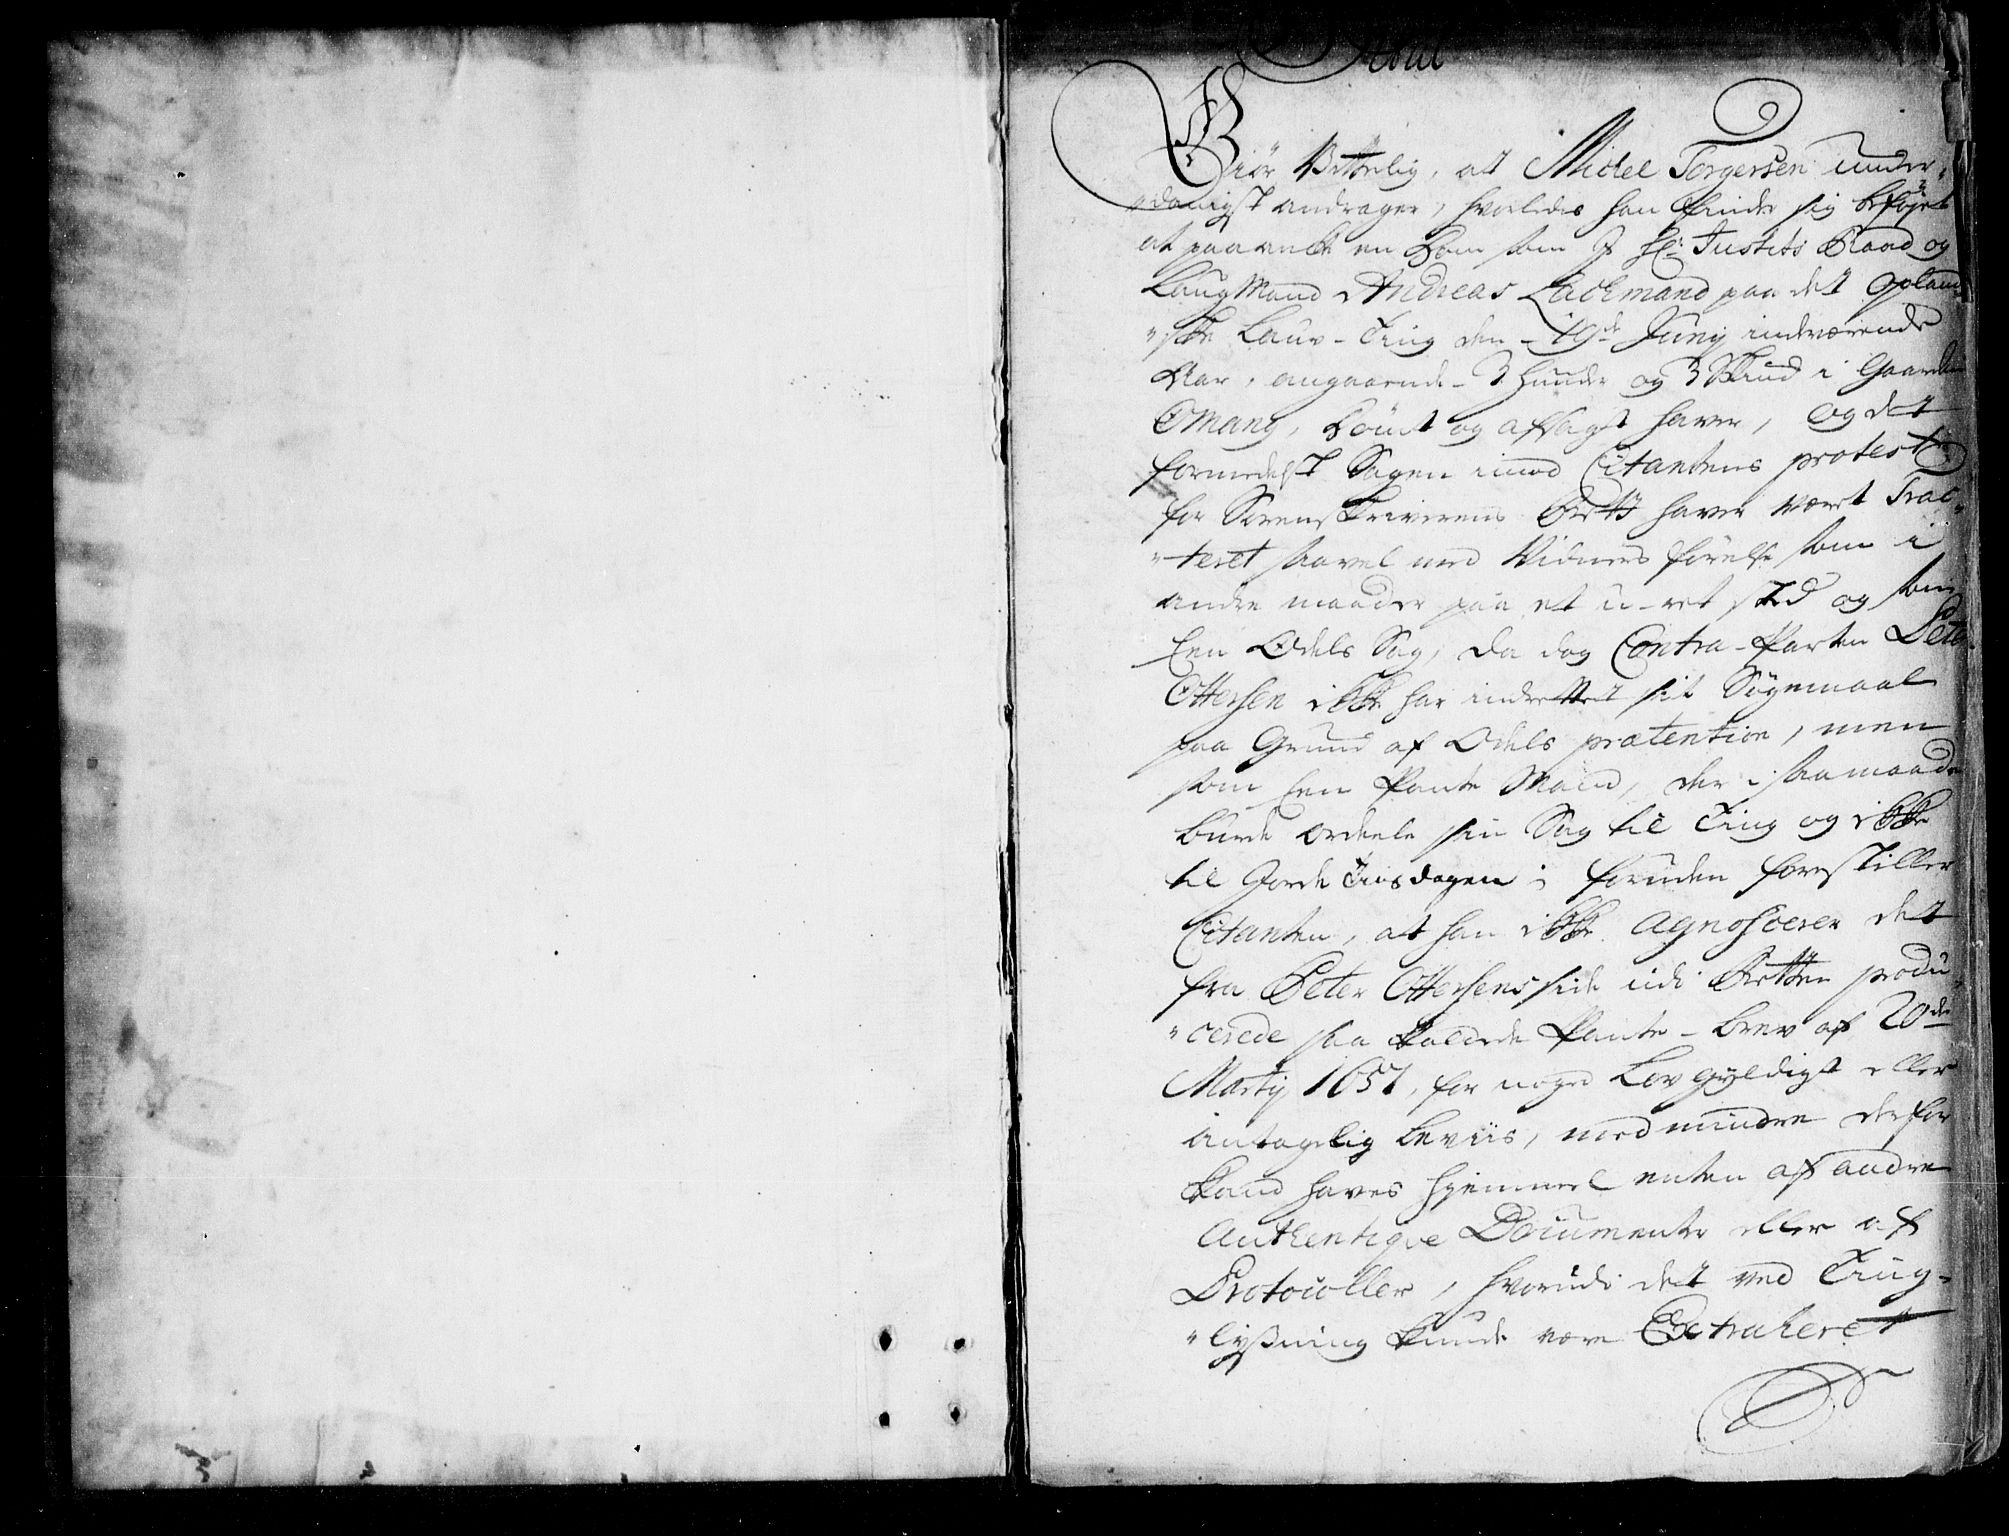 Giør Vitterlig, at Michel Torgersen under-
"danigst andrager, hvorledes han finder sig beføyet
at paaanke en Dom som Justits Raad og
Laugmand Andreas Lachmand paa det Opland-
"ske Lauv-Ting den 19de Junij indeværende
Aar, angaaende 3 Hunder og 3 Skind i Gaarden
Omang, dømt og afsagt haver, og det
formedelst Sagen imod Citantens protest
for Sorenskriverens Rætt haver været Trac-
"teret saavel med Vidners førelse som i
andre maader paa et u-ret sted og som
een Odels Sag, da dog Contra-Parten Peter
Ottersen ikke har indrettet sit Søgemaal
paa Grund af Odels prætention, men
som een Pante Mand, der i saa maade
burde ordeele sin Sag til Ting og ikke
til Jorde Tinsdagen; foruden forestiller
Citanten, at han ikke agnoscerer det
fra Peter Ottersens side udi Rætten produ-
"cerede saa kaldede Pante-brev af 20de
Martij 1657, for noged Lovgyldigt eller
antagelig beviis, med mindre derfor
kand haves hjemmel enten af andre
Authentiqve Documenter eller af
Protocoller, hvorudi det ved Ting-
"lysning kunde være Extraheret